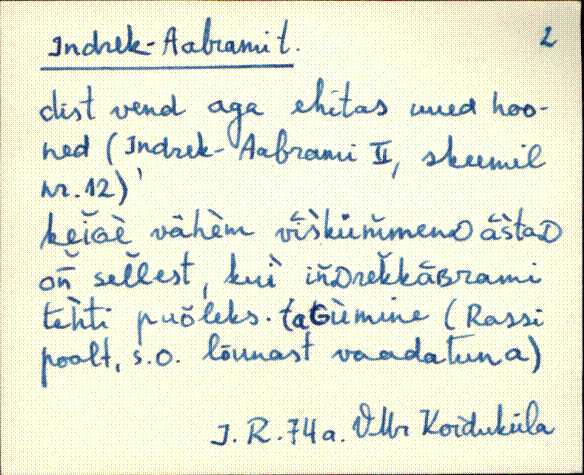 Indrek-Aabrami t. 2
dist vend aga ehitas uued hoo-
ned (Indrek-Aabrami II, skeemil
nr. 12)
vähèm vīs̀küm̆menD ās̀taD
on̆ sel̆lest, kui in̆Drek̆kāBrami
tehti puŏleks. taGùmine (Rassi
poolt, s.o. lõunast vaadatuna)
J. R. 74 a. VMr Koiduküla